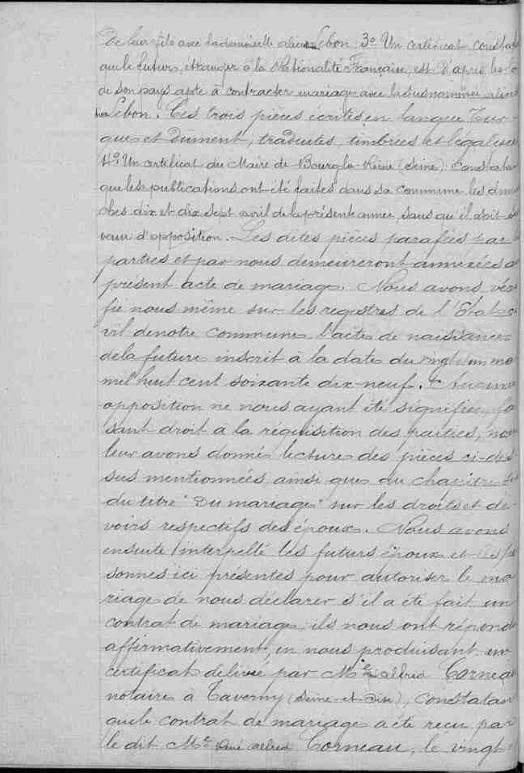 De leur fils avec lademoiselle alice Lebon. 3º Un certificat constatant
que le futur, étranger à la Nationalité Française, est d'après les lo
de son pays apte à contracter mariage avec la susnommée alice
Lebon. Ces trois pièces écrites en langue Tur-
ques et dument, traduites, timbrées et légalisées
4º Un certificat du Maire de Bourg-la-Reine (Seine). Constatan
que les publications ont été faites dans sa commune les diman
ches dix et dix sept avril de la présente année, sans qu'il soit
d'opposition. Les dites pièces parafées par
parties et par nous demeureront annexées a
présent acte de mariage. Nous avons véri
fié nous même sur les registres de l'Etat-ci
vil de notre commune l'acte de naissance
de la future inscrit à la date du vingt un ma
mil huit cent soixante dix-neuf. Aucune
opposition ne nous ayant été signifiée, fai
sant droit à la réquisition des parties, nous
leur avons donné lecture des pièces ci-des
sus mentionnées, ainsi que du chapitre
du titre "Du mariage" sur les droits et de-
voirs respectifs des époux. Nous avons
ensuite interpellé les futurs époux et les per
sonnes ici présentes pour autoriser le ma
riage de nous déclarer s'il a été fait un
contrat de mariage, ils nous ont répondu
affirmativement, en nous produisant un
certificat délivré par Me alfred Corneau
notaire à Taverny (Seine-et-Oise), constatan
que le contrat de mariage a été reçu par
le dit Me alfred Corneau, le vingt